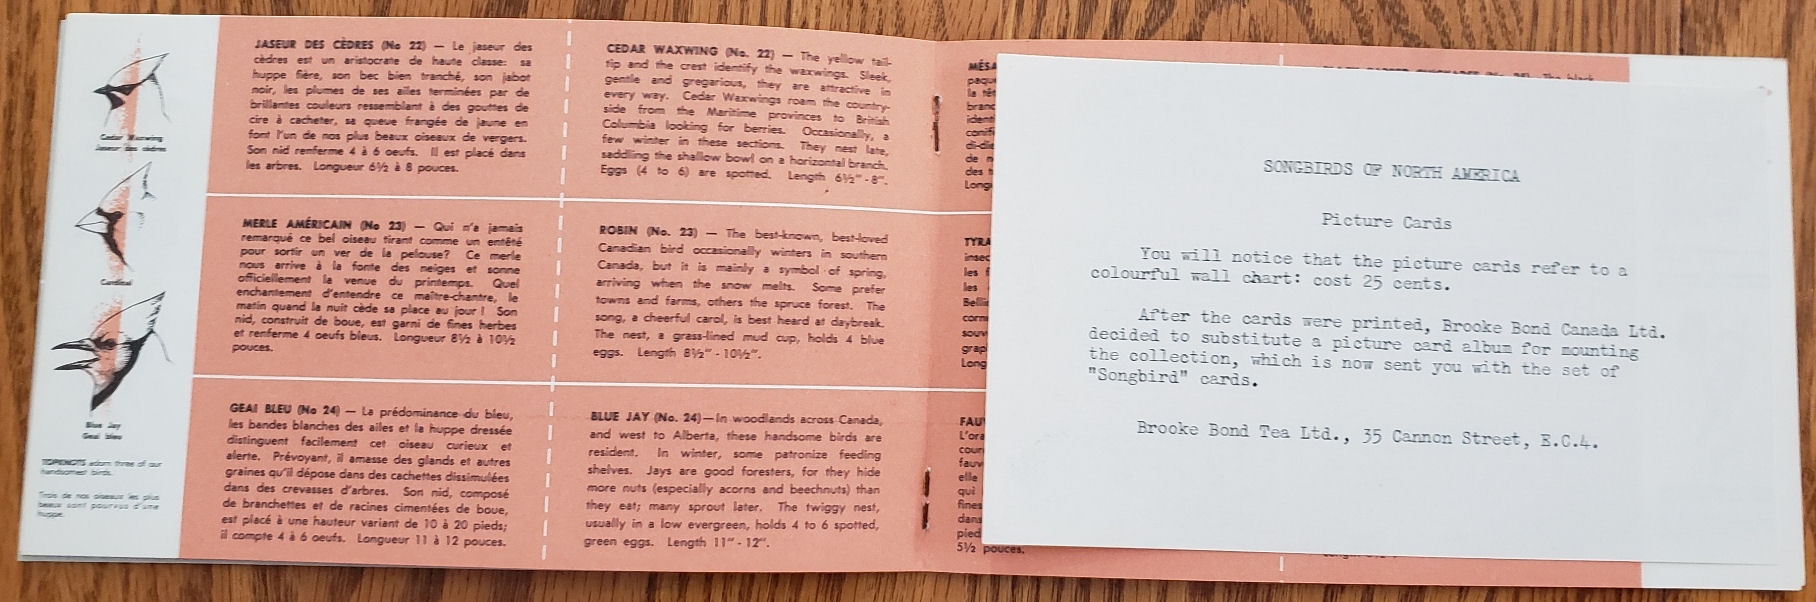 Cedar Waxwing
Jaseur des cèdres
Cardinal
Blue Jay
Geai bleu
TOPKNOTS adorn three of our
handsomest birds.
Trois de nos oiseaux les plus
beaux sont pourvus d'une
huppe.
JASEUR DES CÈDRES (No 22) — Le jaseur des
cèdres est un aristocrate de haute classe: sa
huppe fière, son bec bien tranché, son jabot
noir, les plumes de ses ailes terminées par de
brillantes couleurs ressemblant à des gouttes de
cire à cacheter, sa queue frangée de jaune en
font l'un de nos plus beaux oiseaux de vergers.
Son nid renferme 4 à 6 oeufs. Il est placé dans
les arbres. Longueur 6½ à 8 pouces.
MERLE AMÉRICAIN (No 23) — Qui n'a jamais
remarqué ce bel oiseau tirant comme un entêté
pour sortir un ver de la pelouse? Ce merle
nous arrive à la fonte des neiges et sonne
officiellement la venue du printemps. Quel
enchantement d'entendre ce maître-chantre, le
matin quand la nuit cède sa place au jour! Son
nid, construit de boue, est garni de fines herbes
et renferme 4 oeufs bleus. Longueur 8½ à 10½
pouces.
GEAI BLEU (No 24) — La prédominance du bleu,
les bandes blanches des ailes et la huppe dressée
distinguent facilement cet oiseau curieux et
alerte. Prévoyant, il amasse des glands et autres
graines qu'il dépose dans des cachettes dissimulées
dans des crevasses d'arbres. Son nid, composé
de branchettes et de racines cimentées de boue,
est placé à une hauteur variant de 10 à 20 pieds;
il compte 4 à 6 oeufs. Longueur 11 à 12 pouces.
CEDAR WAXWING (No. 22) — The yellow tail-
tip and the crest identify the waxwings. Sleek,
gentle and gregarious, they are attractive in
every way. Cedar Waxwings roam the country-
side from the Maritime provinces to British
Columbia looking for berries. Occasionally, a
few winter in these sections. They nest late,
saddling the shallow bowl on a horizontal branch.
Eggs (4 to 6) are spotted. Length 6½" - 8".
ROBIN (No. 23) — The best-known, best-loved
Canadian bird occasionally winters in southern
Canada, but it is mainly a symbol of spring,
arriving when the snow melts. Some prefer
towns and farms, others the spruce forest. The
song, a cheerful carol, is best heard at daybreak.
The nest, a grass-lined mud cup, holds 4 blue
eggs. Length 8½" - 10½".
BLUE JAY (No. 24)—In woodlands across Canada,
and west to Alberta, these handsome birds are
resident. In winter, some patronize feeding
shelves. Jays are good foresters, for they hide
more nuts (especially acorns and beechnuts) than
they eat; many sprout later. The twiggy nest,
usually in a low evergreen, holds 4 to 6 spotted,
green eggs. Length 11" - 12".
MÉSA
paqu
la tê
branc
ident
conif
di-di
de n
des
Long
TYRA
insec
les f
les
Belli
corn
souv
grap
Long
FAU
L'ora
cour
fauv
elle
qui
fines
dans
pied
5½ pouces.
SONGBIRDS OF NORTH AMERICA
Picture Cards
You will notice that the picture cards refer to a
colourful wall chart: cost 25 cents.
After the cards were printed, Brooke Bond Canada Ltd.
decided to substitute a picture card album for mounting
the collection, which is now sent you with the set of
"Songbird" cards.
Brooke Bond Tea Ltd., 35 Cannon Street, E.C.4.